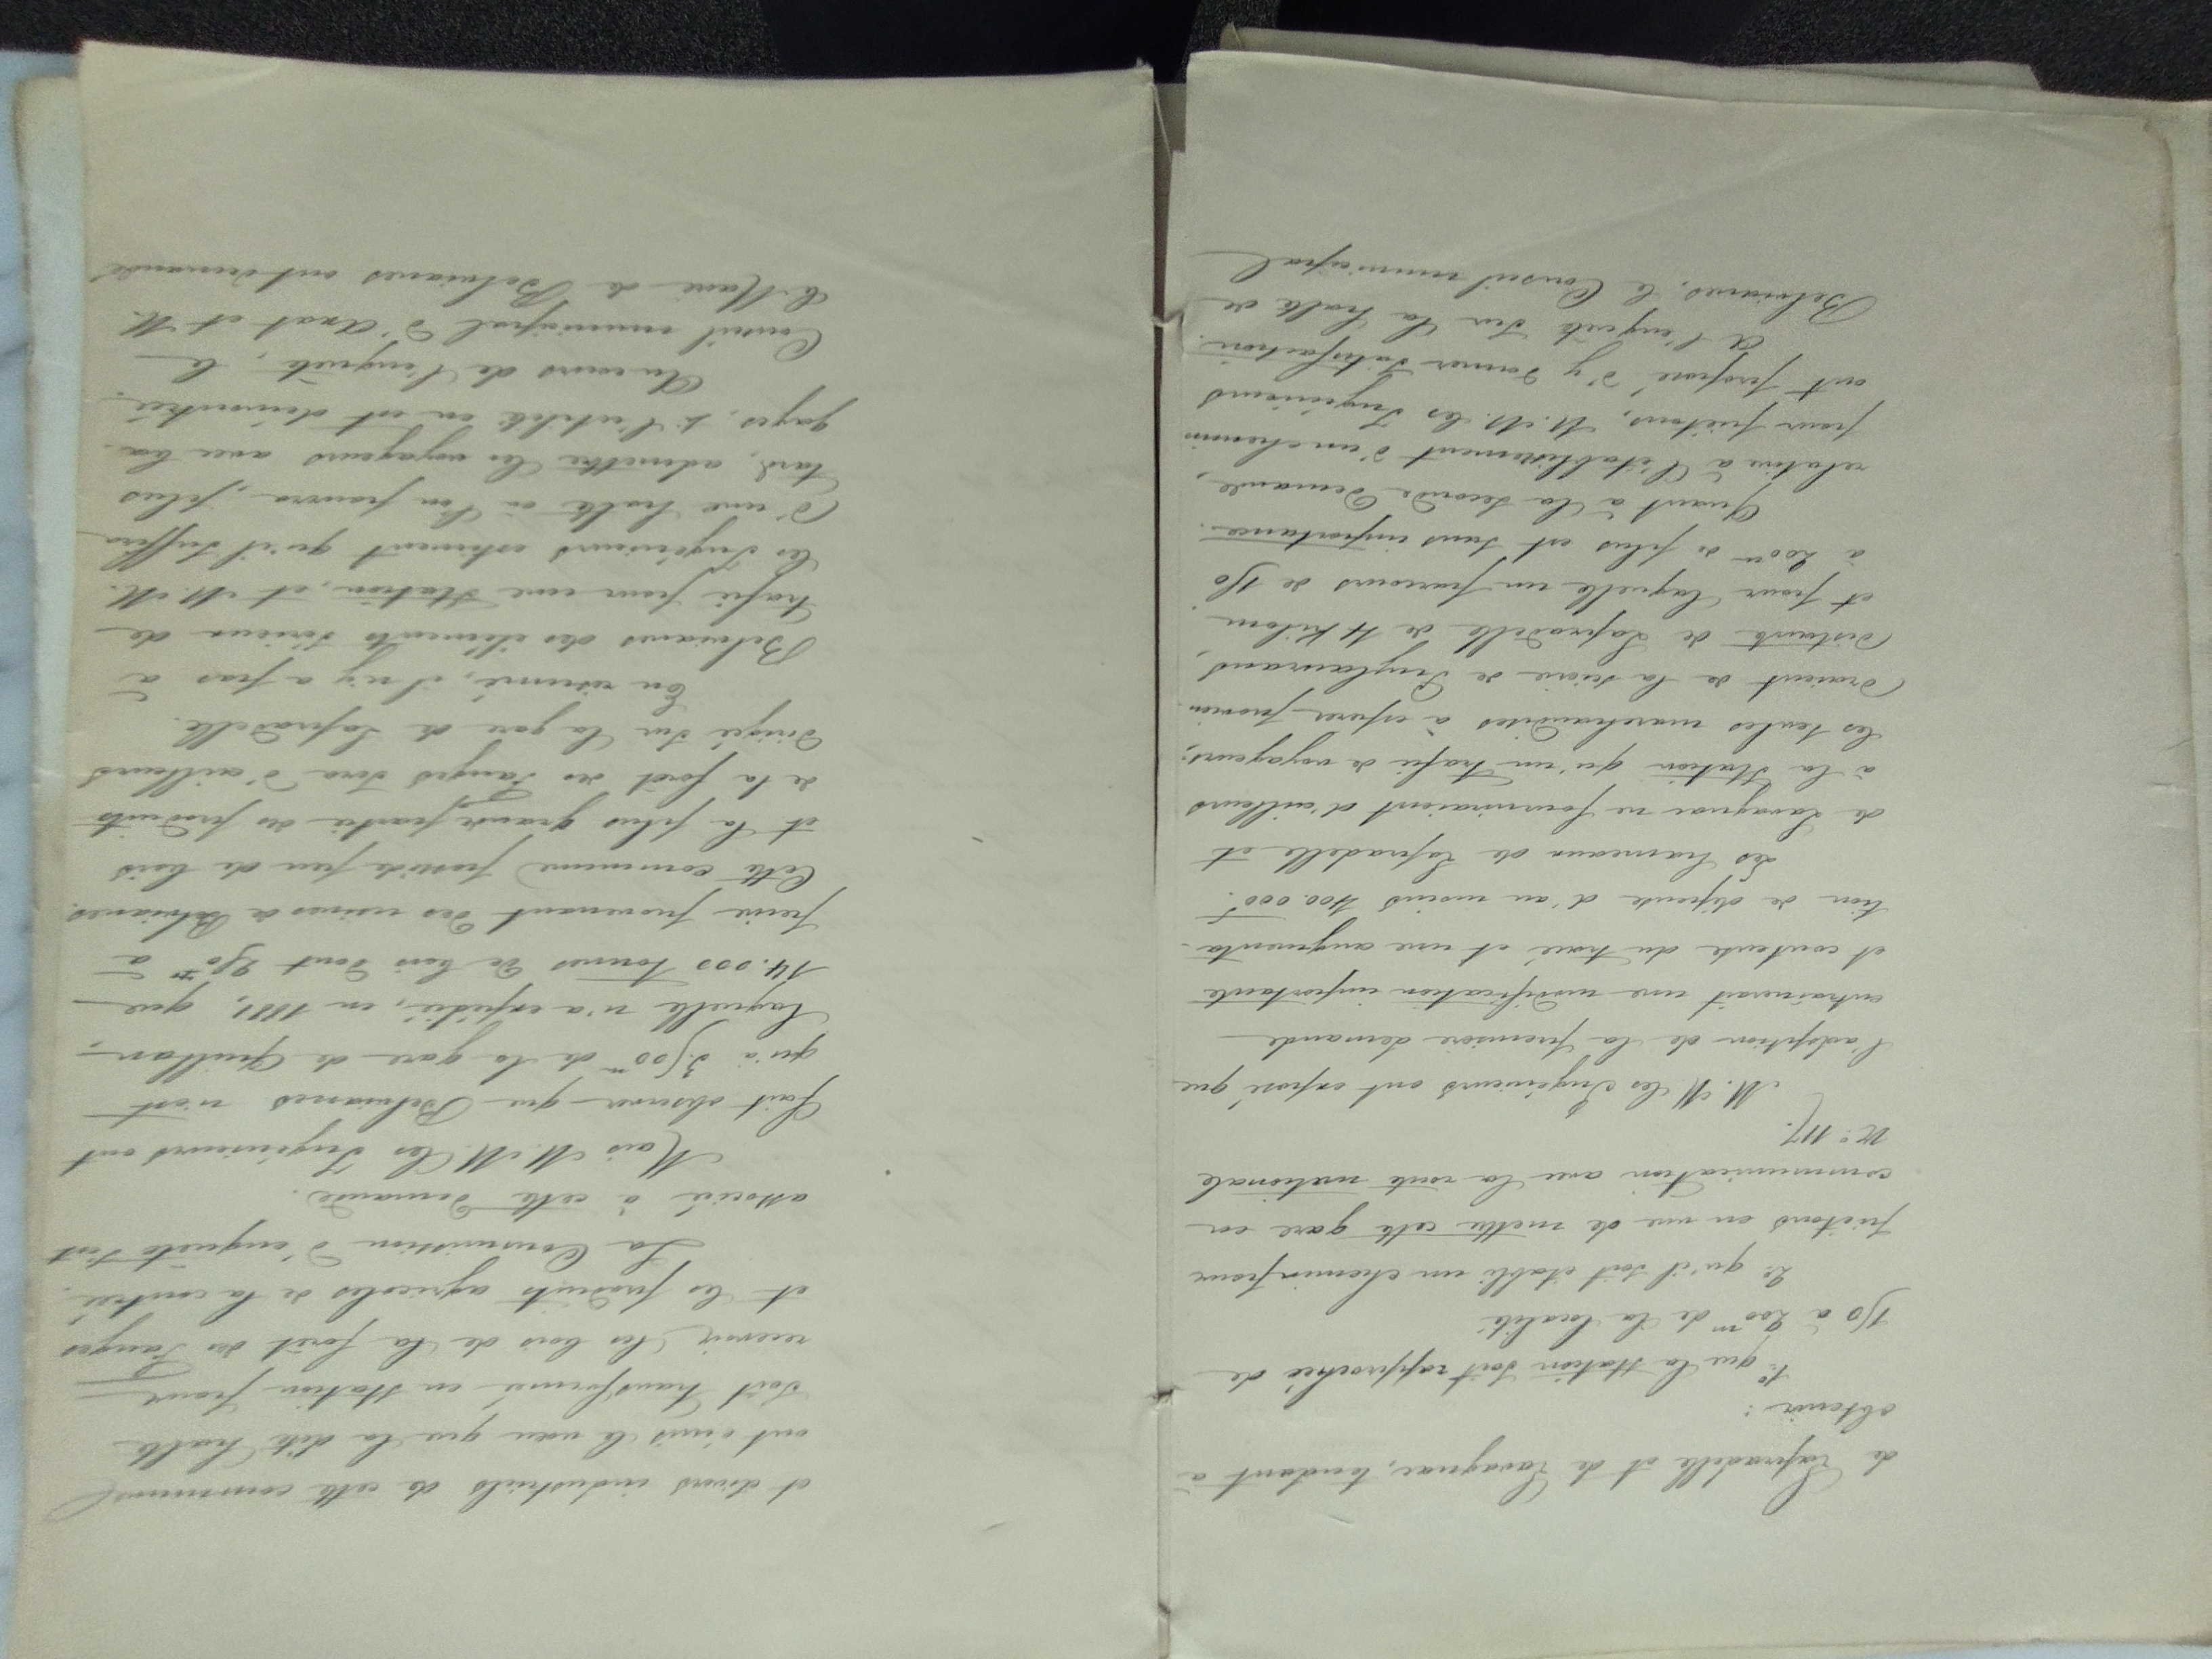 de Lapradelle et de Lavagnac, tendant à
obtenir :
1º que la station soit rapprochée de
150 à 200m de la localité
2º qu'il soit établi un chemin pour
piétons en vue de mettre cette gare en
communication avec la route nationale
Nº 117.
M. M les Ingénieurs ont exposé que
l'adoption de la première demande
entraînerait une modification importante
et couteuse du tracé et une augmenta-
tion de dépense d'au moins 400.000f.
Les hameaux de Lapradelle et
de Lavagnac ne fourniraient d'ailleurs
à la station qu'un trafic de voyageurs;
les seules marchandises à espérer provien-
draient de la scierie de Puylaurens,
distante de Lapradelle de 4 Kilom.
et pour laquelle un parcours de 150
à 200m de plus est sans importance.
Quant à la seconde demande,
relative à l'établissement d'un chemin
pour piétons, M. M. les Ingénieurs
ont proposé d'y donner satisfaction.
A l'enquête sur la halte de
Belvianes, le Conseil municipal
et divers industriels de cette commune
ont émis le vœu que la dite halte
soit transformée en station pour
recevoir les bois de la forêt des Fanges
et les produits agricoles de la contrée.
La Commission d'enquête s'est
associée à cette demande.
Mais M. M. les Ingénieurs ont
fait observer que Belvianes n'est
qu'à 3.500m de la gare de Quillan,
laquelle n'a expédié, en 1881, que
14.000 tonnes de bois dont 250 à
peine provenant des usines de Belvianes.
Cette commune possède peu de bois
et la plus grande partie des produits
de la forêt des Fanges sera d'ailleurs
dirigée sur la gare de Lapradelle.
En résumé, il n'y a pas à
Belvianes des éléments sérieux de
trafic pour une station, et M. M.
les Ingénieurs estiment qu'il suffira
d'une halte où l'on pourra, plus
tard, admettre les voyageurs avec ba-
gages, si l'utilité en est démontrée.
Au cours de l'enquête, le
Conseil municipal d'Axat et M.
le Maire de Belvianes ont demandé